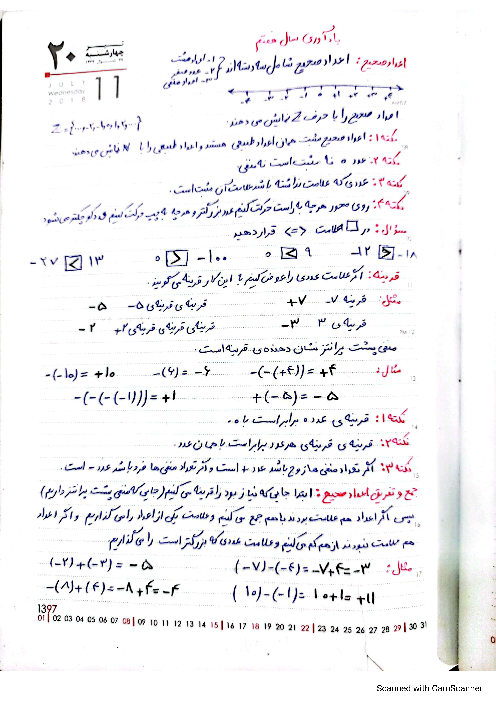 یادآوری سال هفتم
۲۰ چهارشنبه
JULY
Wednesday
2018
11
اعداد صحیح: اعداد صحیح شامل سه دسته‌اند ۱- اعداد مثبت
۲- عدد صفر
۳- اعداد منفی
اعداد صحیح را با حرف Z نمایش می‌دهند.
نکته ۱: اعداد صحیح مثبت همان اعداد طبیعی هستند و اعداد طبیعی را با N نمایش می‌دهند
نکته ۲: عدد ۰ نه مثبت است نه منفی
نکته ۳: عددی که علامت نداشته باشد علامت آن مثبت است.
نکته ۴: روی محور هرچه به راست حرکت کنیم عدد بزرگتر و هرچه به چپ حرکت کنیم عدد کوچکتر می‌شود
سوال: در □ علامت <=> قرار دهید
-۲۷ < ۱۳ ۰ > -۱۰۰ ۰ < ۹ -۱۲ > -۱۸
قرینه: اگر علامت عددی را عوض کنیم با این کار قرینه می‌گویند.
مثال: قرینه ۷- +۷ قرینه‌ی قرینه‌ی ۵- -۵
قرینه‌ی ۳ -۳ قرینه‌ی قرینه‌ی قرینه‌ی ۲+ -۲
منفی پشت پرانتز نشان دهنده‌ی قرینه است.
مثال: -(-(+۴)) = +۴ -(۶) = -۶ -(-۱۰) = +۱۰
+(-۵) = -۵ -(-(-(-۱))) = +۱
نکته ۱: قرینه‌ی عدد ۰ برابر است با ۰.
نکته ۲: قرینه‌ی قرینه‌ی هر عدد برابر است با همان عدد.
نکته ۳: اگر تعداد منفی‌ها زوج باشد عدد + است و اگر تعداد منفی‌ها فرد باشد عدد - است.
جمع و تفریق اعداد صحیح: ابتدا جایی که نیاز بود را قرینه می‌کنیم (جایی که منفی پشت پرانتز داریم)
سپس اگر اعداد هم علامت بودند باهم جمع می‌کنیم و علامت یکی از اعداد را می‌گذاریم و اگر اعداد
هم علامت نبودند از هم کم می‌کنیم و علامت عددی که بزرگتر است را می‌گذاریم
مثال: (-۷)-(-۴) = -۷+۴ = -۳ (-۲)+(-۳) = -۵
(۱۰)-(-۱) = ۱۰+۱ = +۱۱ -(۸)+(۴) = -۸+۴ = -۴
1397
01 | 02 03 04 05 06 07 08 | 09 10 11 12 13 14 15 | 16 17 18 19 20 21 22 | 23 24 25 26 27 28 29 | 30 31
Scanned with CamScanner